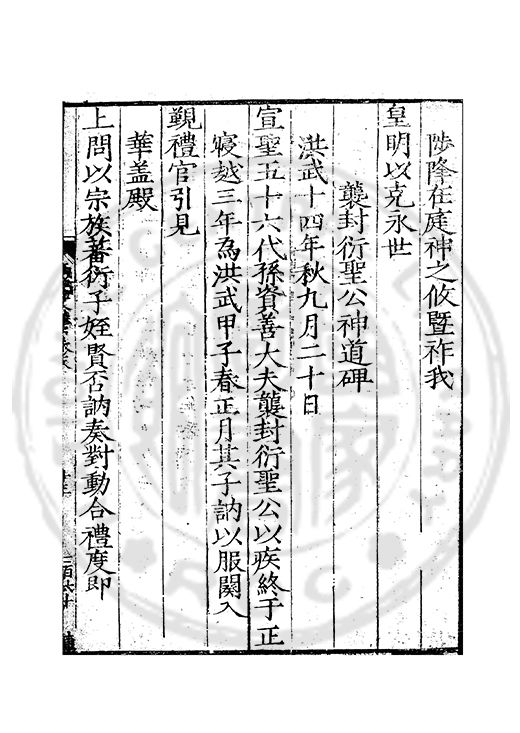 陟降在庭神之攸暨祚我
皇明以克永世
襲封衍聖公神道碑
洪武十四年秋九月二十日
宣聖五十六代孫資善大夫襲封衍聖公以疾終于正
寢越三年為洪武甲子春正月其子訥以服闋入
覲禮官引見
華盖殿
上問以宗族蕃衍子姪賢否訥奏對動合禮度即